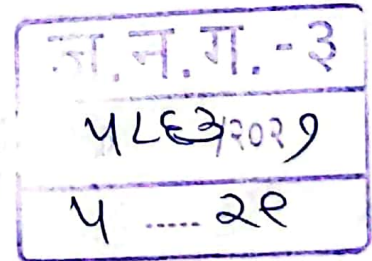 ज.न.ग.-३
५८६३/२०२१
५ ..... २९